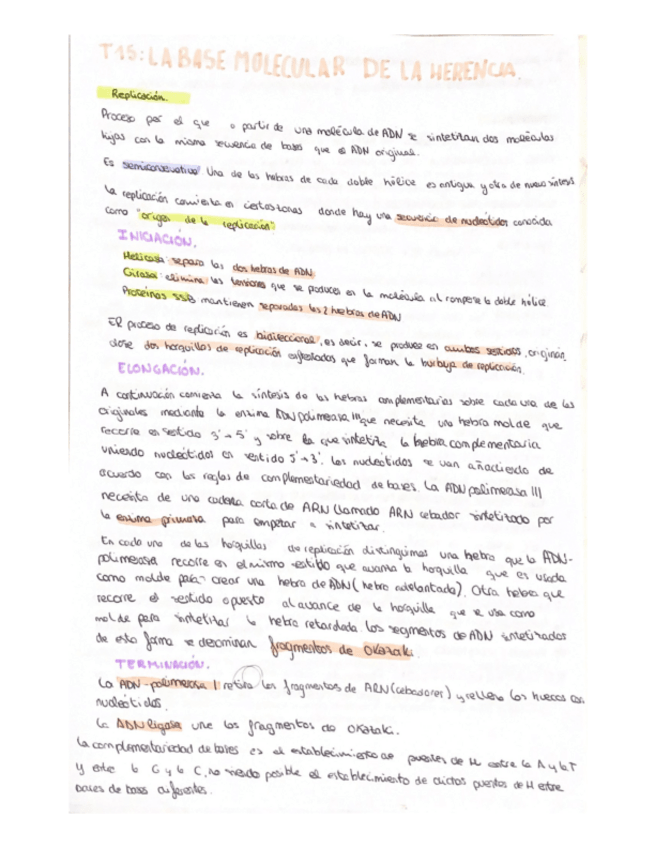 T15: LA BASE MOLECULAR DE LA HERENCIA.
Replicación.
Proceso por el que a partir de una molécula de ADN se sintetizan dos moléculas
hijas con la misma secuencia de bases que el ADN original.
Es semiconservativa Una de las hebras de cada doble hélice es antigua y otra de nueva síntesis
La replicación comienza en ciertas zonas donde hay una secuencia de nucleótidos conocida
como "origen de la replicación"
INICIACIÓN.
Helicasa: separa las dos hebras de ADN
Girasa: elimina las tensiones que se produces en la molécula al romperse la doble hélice
Proteínas SSB mantienen separadas las 2 hebras de ADN
El proceso de replicación es bidireccional, es decir, se produce en ambos sentidos, originán
dose dos horquillas de replicación enfrentadas que forman la burbuja de replicación.
ELONGACIÓN.
A continuación comienza la síntesis de las hebras complementarias sobre cada una de las
originales mediante la enzima ADN polimerasa III que necesita una hebra molde que
recorre en sentido 3' → 5' y sobre la que sintetiza la hebra complementaria
uniendo nucleótidos en sentido 5' → 3'. Los nucleótidos se van añadiendo de
acuerdo con las reglas de complementariedad de bases. La ADN polimerasa III
necesita de una cadena corta de ARN llamado ARN cebador sintetizado por
la enzima primasa para empezar a sintetizar.
En cada una de las horquillas de replicación distinguimos una hebra que la ADN-
polimerasa recorre en el mismo sentido que avanza la horquilla que es usada
como molde para crear una hebra de ADN (hebra adelantada). Otra hebra que
recorre el sentido opuesto al avance de la horquilla que se usa como
molde para sintetizar la hebra retardada. Los segmentos de ADN sintetizados
de esta forma se denominan fragmentos de Okazaki.
TERMINACIÓN.
La ADN-polimerasa I retira los fragmentos de ARN (cebadores) y rellena los huecos con
nucleótidos.
La ADN ligasa une los fragmentos de Okazaki.
La complementariedad de bases es el establecimiento de puentes de H entre la A y la T
y entre la G y la C, no siendo posible el establecimiento de dichos puentes de H entre
pares de bases diferentes.